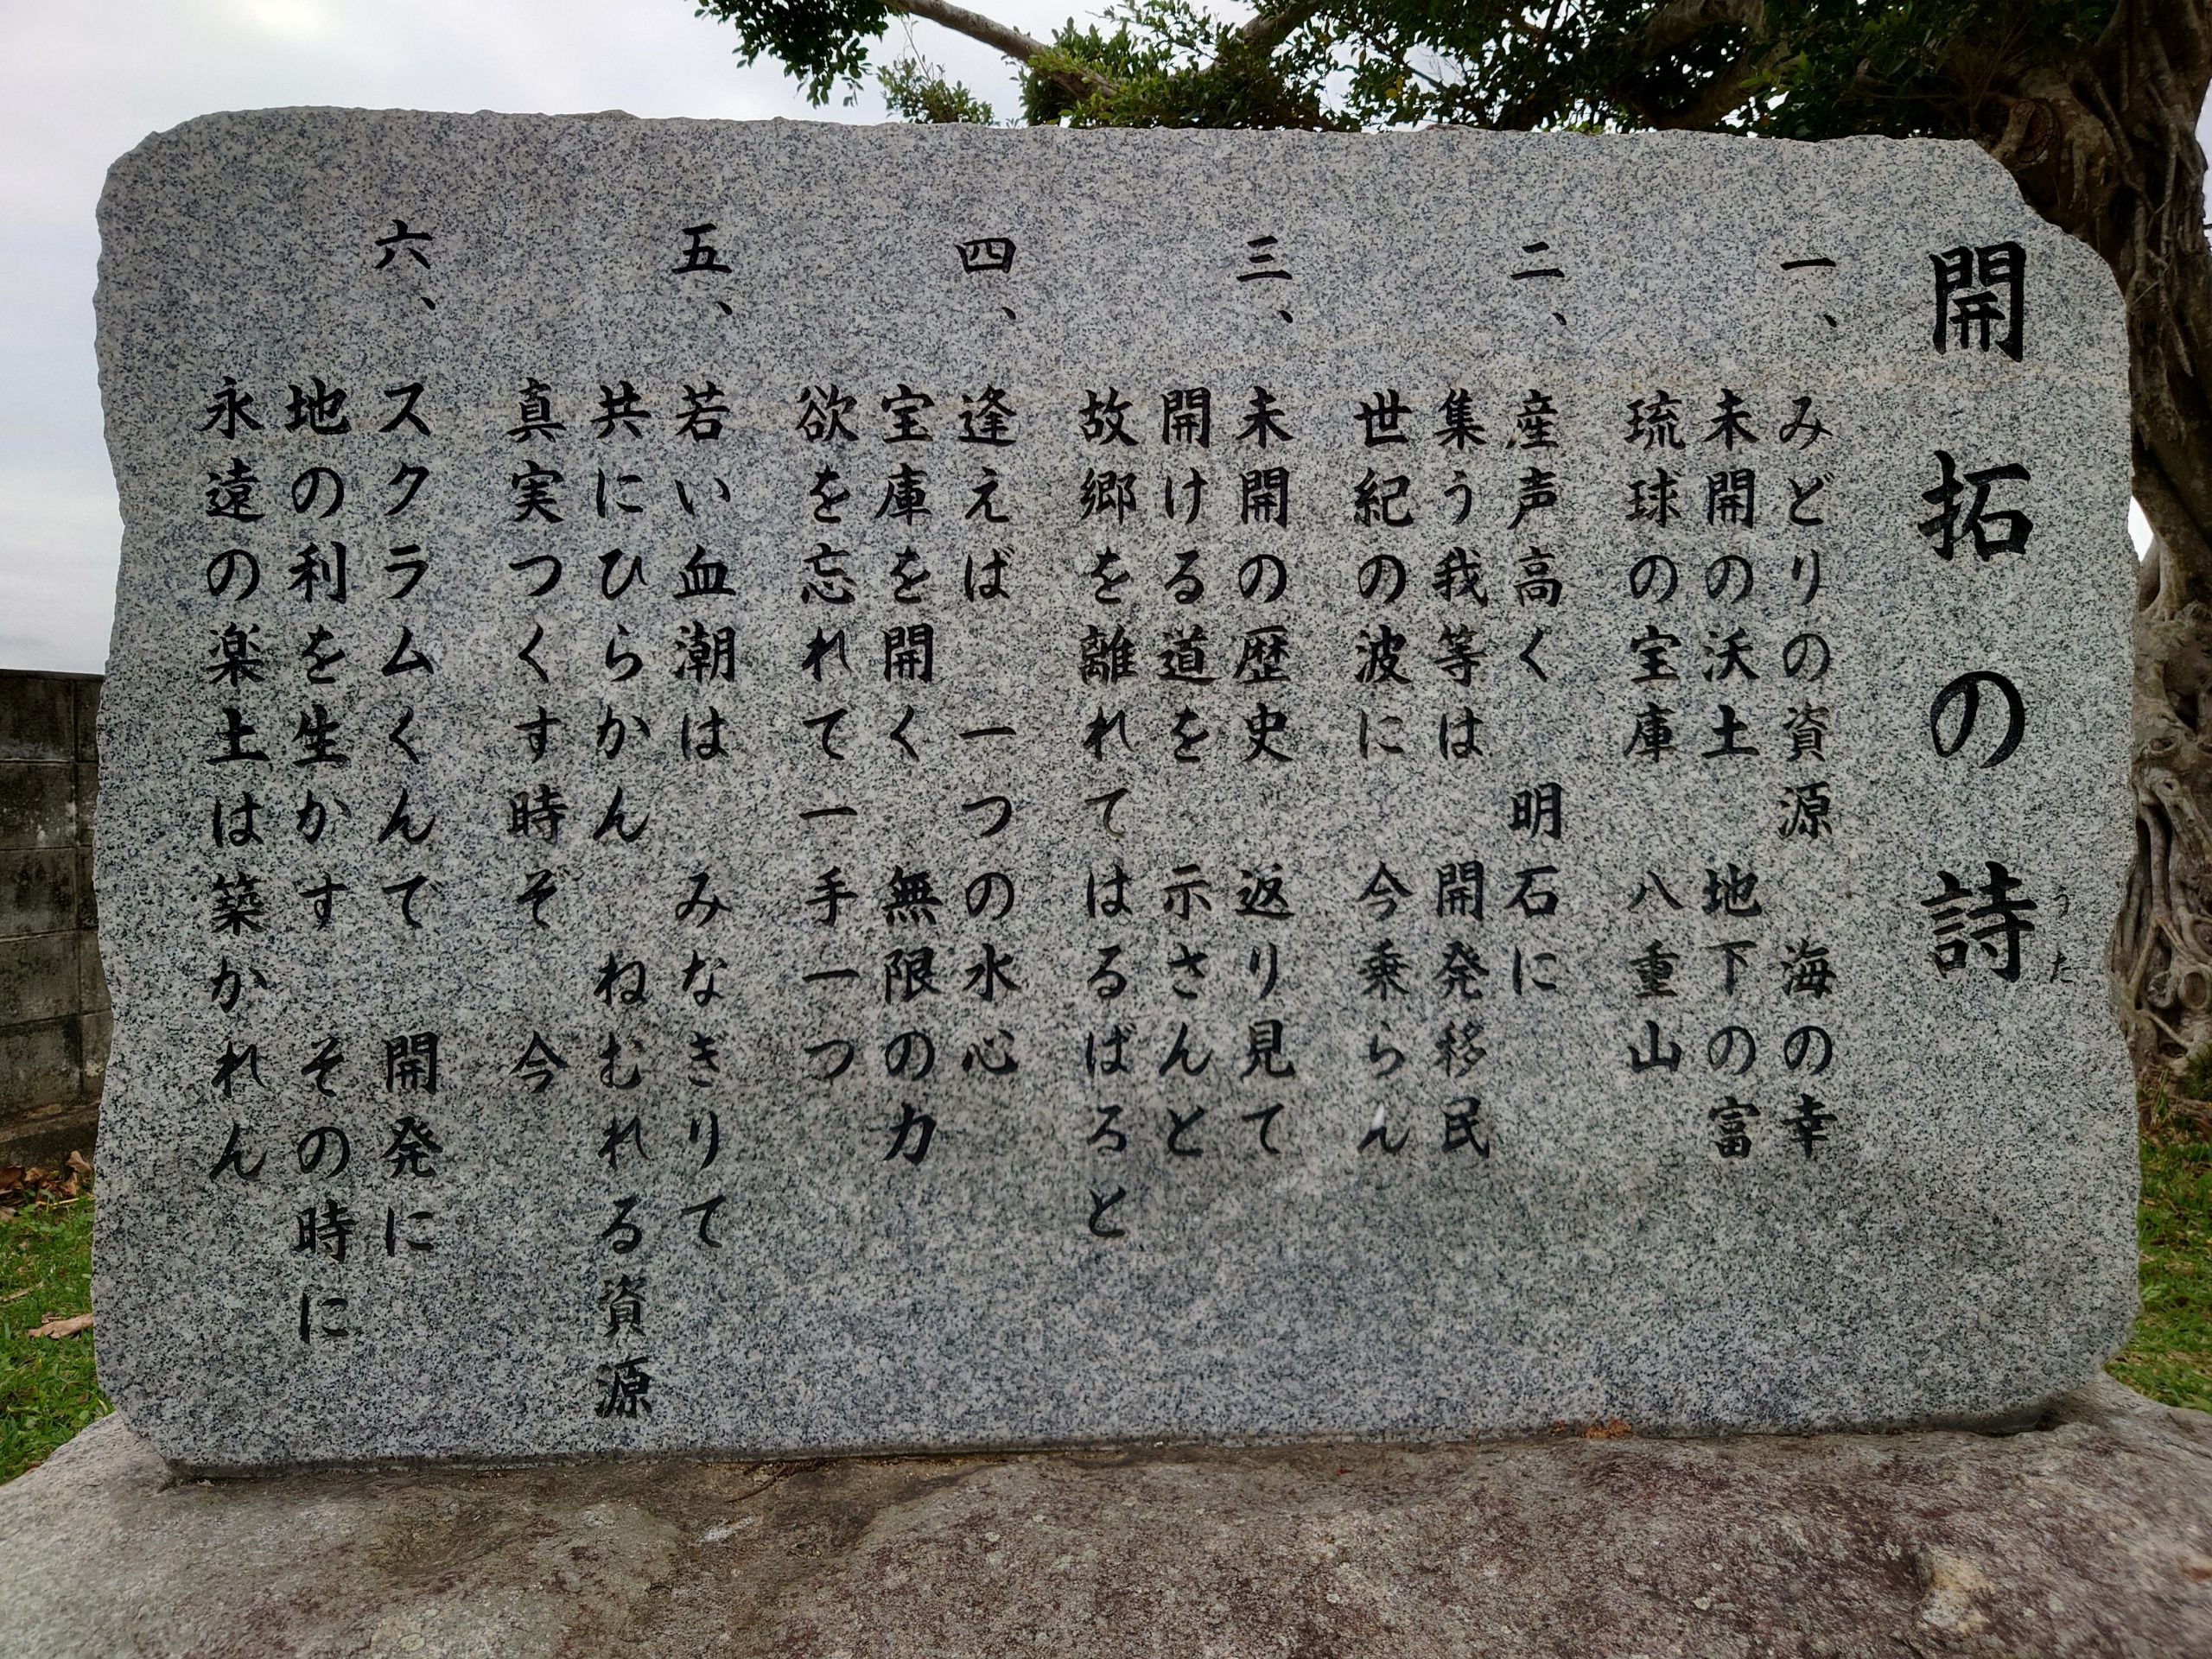 開拓の詩
うた
一、 みどりの資源 海の幸
未開の沃土 地下の富
琉球の宝庫 八重山
二、 産声高く 明石に
集う我等は 開発移民
世紀の波に 今乗らん
三、 未開の歴史 返り見て
開ける道を 示さんと
故郷を離れてはるばると
四、 逢えば 一つの水心
宝庫を開く 無限の力
欲を忘れて一手一つ
五、 若い血潮は みなぎりて
共にひらかん ねむれる資源
真実つくす時ぞ 今
六、 スクラムくんで 開発に
地の利を生かす その時に
永遠の楽土は築かれん